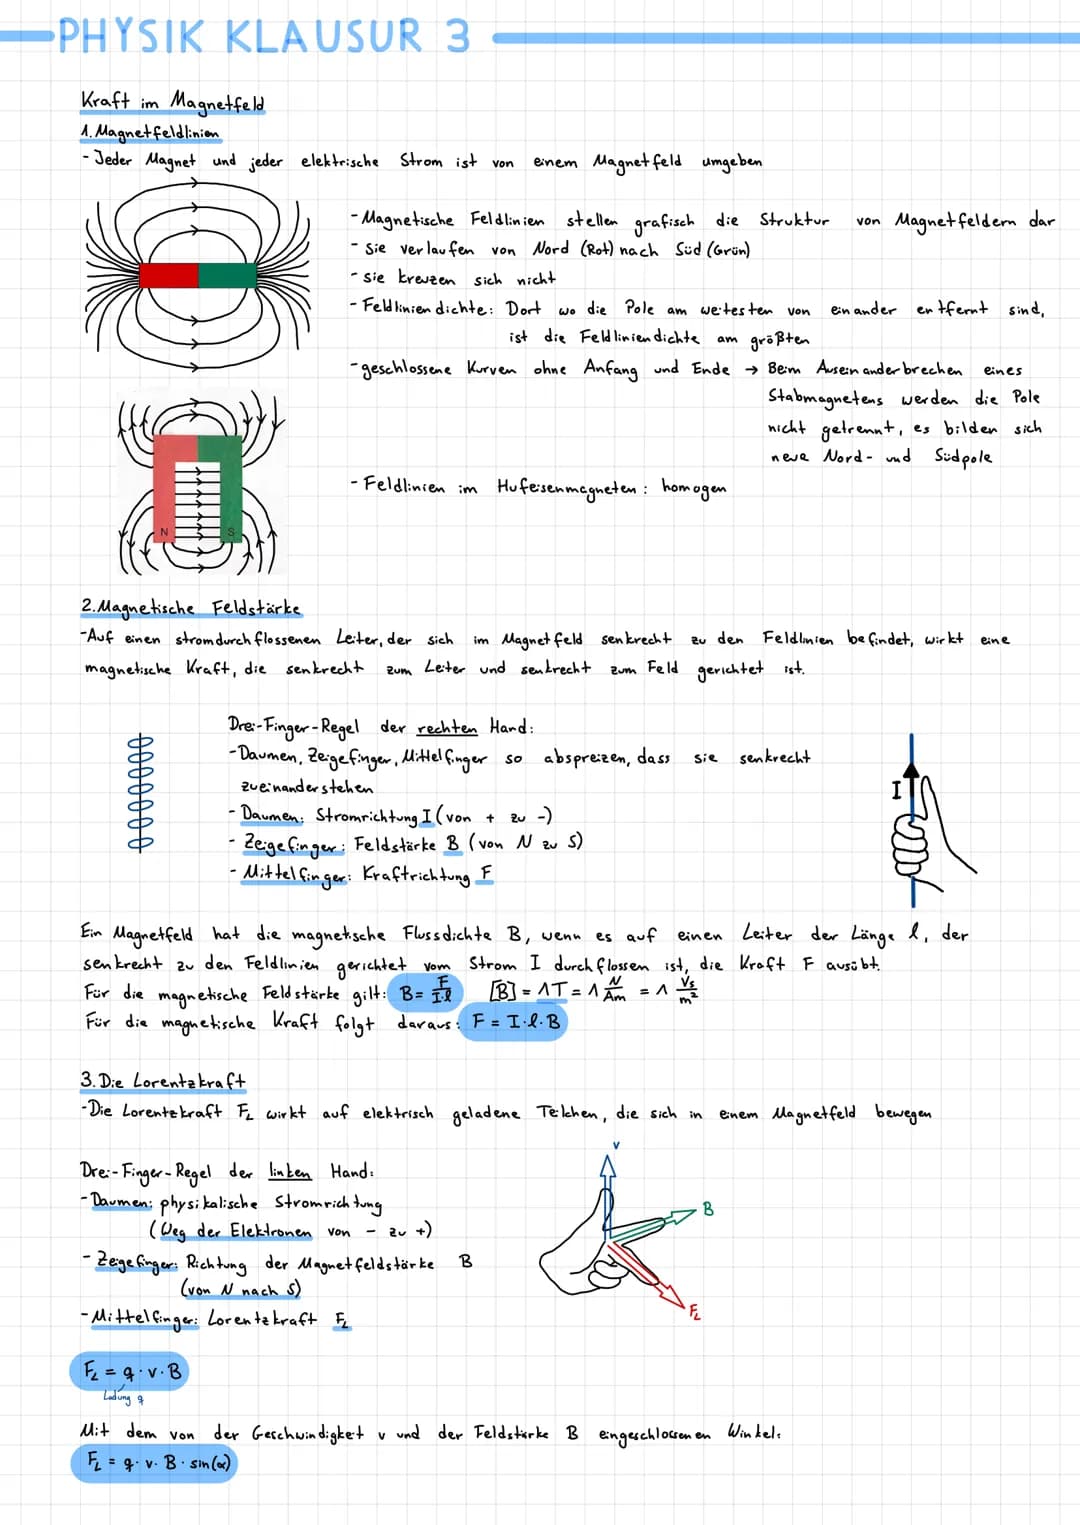 PHYSIK KLAUSUR 3
Kraft im Magnetfeld
1. Magnetfeldlinien
- Jeder Magnet und jeder elektrische Strom ist von einem Magnetfeld umgeben
- Magnetische Feldlinien stellen grafisch die Struktur von Magnetfeldern dar
- Sie verlaufen von Nord (Rot) nach Süd (Grün)
- sie kreuzen sich nicht
- Feldliniendichte: Dort wo die Pole am weitesten von einander entfernt sind,
ist die Feldliniendichte am größten
- geschlossene Kurven ohne Anfang und Ende → Beim Auseinanderbrechen eines
Stabmagnetens werden die Pole
nicht getrennt, es bilden sich
neue Nord- und Südpole
- Feldlinien im Hufeisenmagneten: homogen
N S
2. Magnetische Feldstärke
- Auf einen stromdurchflossenen Leiter, der sich im Magnetfeld senkrecht zu den Feldlinien befindet, wirkt eine
magnetische Kraft, die senkrecht zum Leiter und senkrecht zum Feld gerichtet ist.
Drei-Finger-Regel der rechten Hand:
- Daumen, Zeigefinger, Mittelfinger so abspreizen, dass sie senkrecht
zueinander stehen
- Daumen: Stromrichtung I (von + zu -)
- Zeigefinger: Feldstärke B (von N zu S)
- Mittelfinger: Kraftrichtung F
I
Ein Magnetfeld hat die magnetische Flussdichte B, wenn es auf einen Leiter der Länge l, der
senkrecht zu den Feldlinien gerichtet vom Strom I durchflossen ist, die Kraft F ausübt.
Für die magnetische Feldstärke gilt: B = F/I·l [B] = 1T = 1 N/Am = 1 Vs/m²
Für die magnetische Kraft folgt daraus: F = I·l·B
3. Die Lorentzkraft
- Die Lorentzkraft F_L wirkt auf elektrisch geladene Teilchen, die sich in einem Magnetfeld bewegen
Drei-Finger-Regel der linken Hand:
- Daumen: physikalische Stromrichtung
(Weg der Elektronen von - zu +)
- Zeigefinger: Richtung der Magnetfeldstärke B
(von N nach S)
- Mittelfinger: Lorentzkraft F_L
v
B
F_L
F_L = q·v·B
Ladung q
Mit dem von der Geschwindigkeit v und der Feldstärke B eingeschlossenen Winkel:
F_L = q·v·B·sin(α)